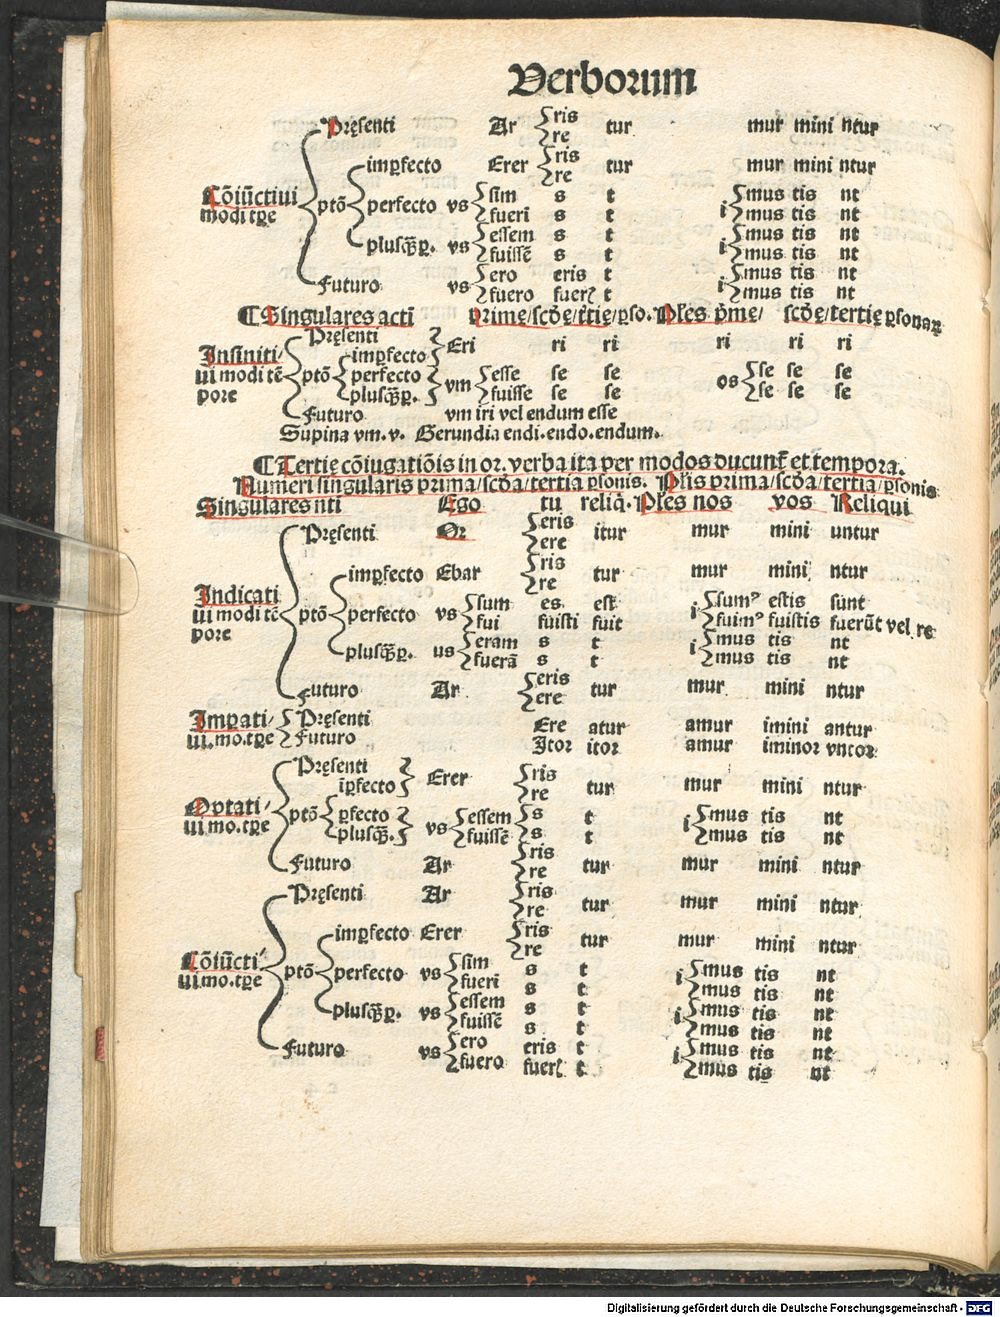 Verborum
Pręsenti Ar ris tur mur mini ntur
re
imꝑfecto Erer ris tur mur mini ntur
re
Cōiūctiui ptō perfecto vs sim s t i mus tis nt
modi tꝑe fueri s t mus tis nt
plusꝙ̄ꝑ. vs essem s t i mus tis nt
fuissē s t mus tis nt
Futuro vs ero eris t i mus tis nt
fuero fuerꝭ t mus tis nt
¶ Singulares acti Prime/scd̄ę/t̄tię/ꝑso. Ples p̄me/ scd̄ę/tertię ꝑsonaꝝ
Pręsenti Eri ri ri ri ri ri
Infiniti/ imꝑfecto
ui modi tē ptō perfecto vm esse se se os se se se
pore plusꝙ̄ꝑ. fuisse se se se se se
Futuro vm iri vel endum esse
Supina vm. v. Gerundia endi. endo. endum.
¶ Tertię cōiugatiōis in or. verba ita per modos ducunt̄ et tempora.
Numeri singularis prima/scd̄a/tertia ꝑsonis. Plis prima/scd̄a/tertia/ꝑsonis
Singulares nti Ego tu reliq̄. Ples nos vos Reliqui
Pręsenti Or eris itur mur mini untur
ere
imꝑfecto Ebar ris tur mur mini ntur
re
Indicati sum es est i sumꝰ estis sūnt
ui modi tē ptō perfecto vs fui fuisti fuit fuimꝰ fuistis fuerūt vel re
pore plusꝙ̄ꝑ. us eram s t i mus tis nt
fuerā s t mus tis nt
Futuro Ar eris tur mur mini ntur
ere
Imꝑati/ Pręsenti Ere atur amur imini antur
ui.mo.tꝑe Futuro Itor itor amur iminor vntor
Pręsenti Erer ris tur mur mini ntur
īꝑfecto re
Optati/ ptō ꝑfecto vs essem s t i mus tis nt
ui mo.tꝑe plusꝙ̄. fuissē s t mus tis nt
Futuro Ar ris tur mur mini ntur
re
Pręsenti Ar ris tur mur mini ntur
re
imꝑfecto Erer ris tur mur mini ntur
re
Cōiūcti/ ptō perfecto vs sim s t i mus tis nt
ui.mo.tꝑe fueri s t mus tis nt
plusꝙ̄ꝑ. vs essem s t i mus tis nt
fuissē s t mus tis nt
Futuro vs ero eris t i mus tis nt
fuero fuerꝭ t mus tis nt
Digitalisierung gefördert durch die Deutsche Forschungsgemeinschaft - DFG